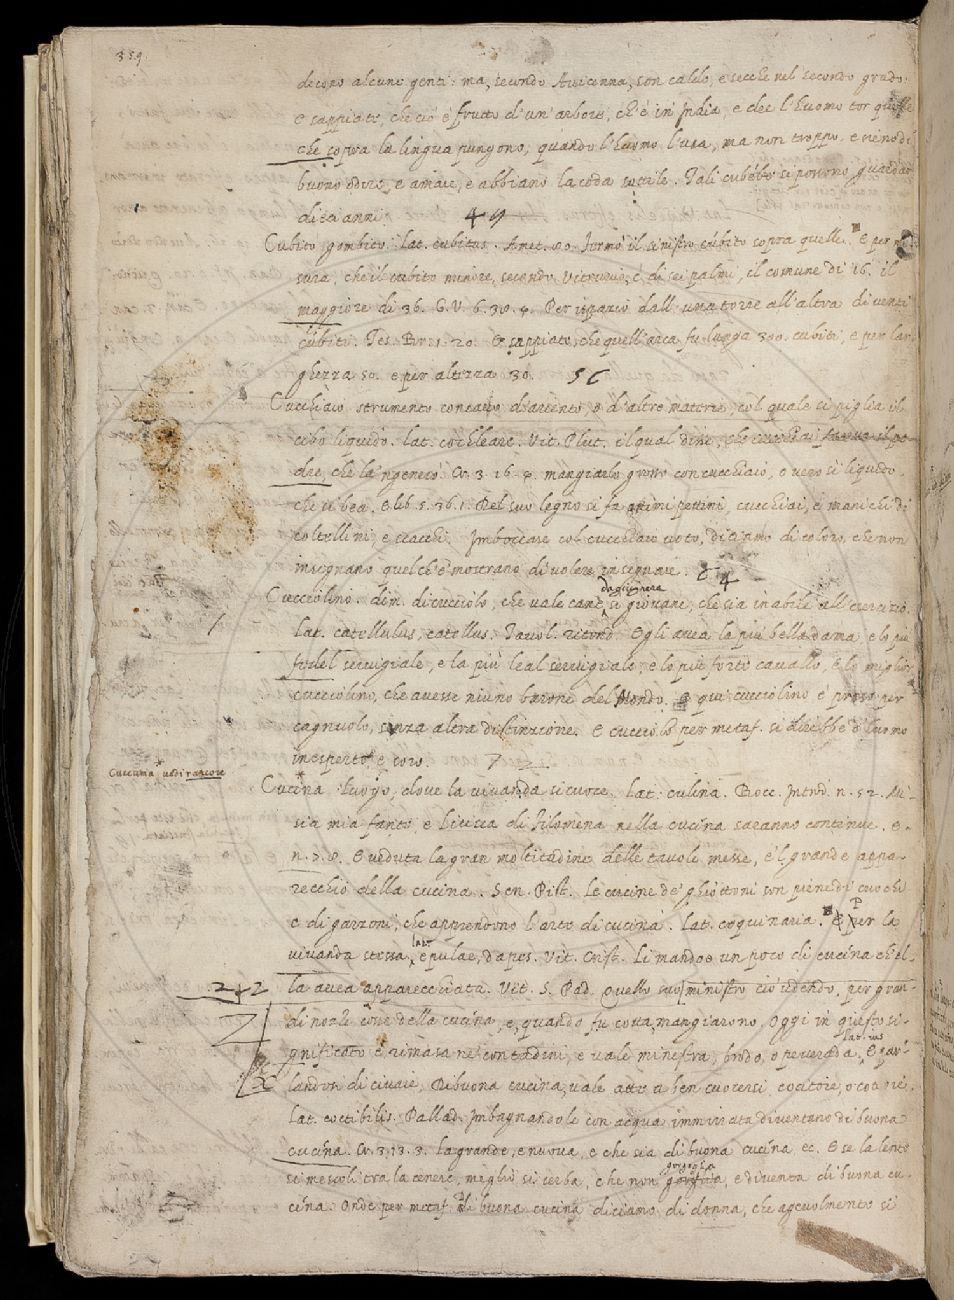 359
dicono alcune genti: ma, secondo Avicenna, son caldo, e secche nel secondo grado.
e sappiate, che ciò è frutto d'un'arbore, ch'è in India, e dee l'huomo tor quelle
che sopra la lingua pungono, quando l'huomo l'usa, ma non troppo. e sieno di
buono odore, e amare, e abbiano la coda sottile. Tali cubebbe si possono guardar
dieci anni
Cubito, gombito. lat. cubitus. Amet. 80. fermò il sinistro cubito sopra quelle. E per mi
sura, che il cubito minore, secondo Vitruvio, è di sei palmi, il comune di 16. il
maggiore di 36. G. V. 6. 30. Per ispazio dall'una torre all'altra di venti
cubiti. Tes. Br. 1. 20. E sappiate, che quell'arca fu lunga 300. cubiti, e per lar
ghezza 50. e per altezza 30. 56
Cucchiaio strumento concavo d'ariento, o d'altra materia, col quale si piglia il
cibo liquido. lat. cochleare. Vit. Plut. il qual dice, che
dre, che la 'ngenerò Cr. 3. 16. mangiarlo grosso con cucchiaio, o vero sì liquido,
che si bea. E lib. 5. 36. 1. Del suo legno si fa ottimi pettini, cucchiai, e manichi di
coltellini, e scacchi. Imboccare col cucchiaio voto, diciamo di coloro, che non
insegnano quel ch'e' mostrano di volere insegnare. 4
da giugnere
Cucciolino. dim. di cucciolo, che vale cane sì giovane, che sia inabile all'esercizio.
lat. catellulus, catellus. Tavol. ritond. Egli avea la più bella dama e lo più
fedel servigiale, e la più leal servigiale, e lo più forte cavallo, e lo miglior
cucciolino, che avesse niuno barone del Mondo. E qui cucciolino è preso per
cagnuolo, senza altra distinzione. E cucciolo per metaf. si direbbe d'huomo
inesperto, e soro. 72.
Cuccuma vedi rancore
Cucina luogo, dove la vivanda si cuoce. lat. culina. Bocc. Intrud. n. 52. Mi-
sia mia fante, e Licisca di Filomena nella cucina saranno continue. E.
n. 78. E veduta la gran moltitudine delle tavole messe, e 'l grande appa-
recchio della cucina. Sen. Pist. Le cucine de' ghiottoni son piene di cuochi
e di garzoni, che apprendono l'arte di cucina. lat. coquinaria. E Per la
vivanda stessa, lat. epulae, dapes. Vit. Crist. Li mandoe un poco di cucina ch'el-
la avea apparecchiata. Vit. S. Pad. Quello suo ministro ciò udendo, per gran-
di poste cose della cucina, e, quando fu cotta, mangiarono. Oggi in questo si-
gnificato è rimasa ne' contadini, e vale minestra, brodo, o peverada, E par-
landosi di civaie, Di buona cucina, vale atto a ben cuocersi
lat. coctibilis. Pallad. Imbagnandole con acqua immiviata diventano di buona
cucina. Cr. 3. 13. 3. La grande, e nuova, e che sia di buona cucina, ec. E se la lente
gorgoglia
si mescoli tra la cenere, meglio si serba, che non, e diventa di buona cu-
cina. Onde per metaf. di buona cucina diciamo di donna, che agevolmente si